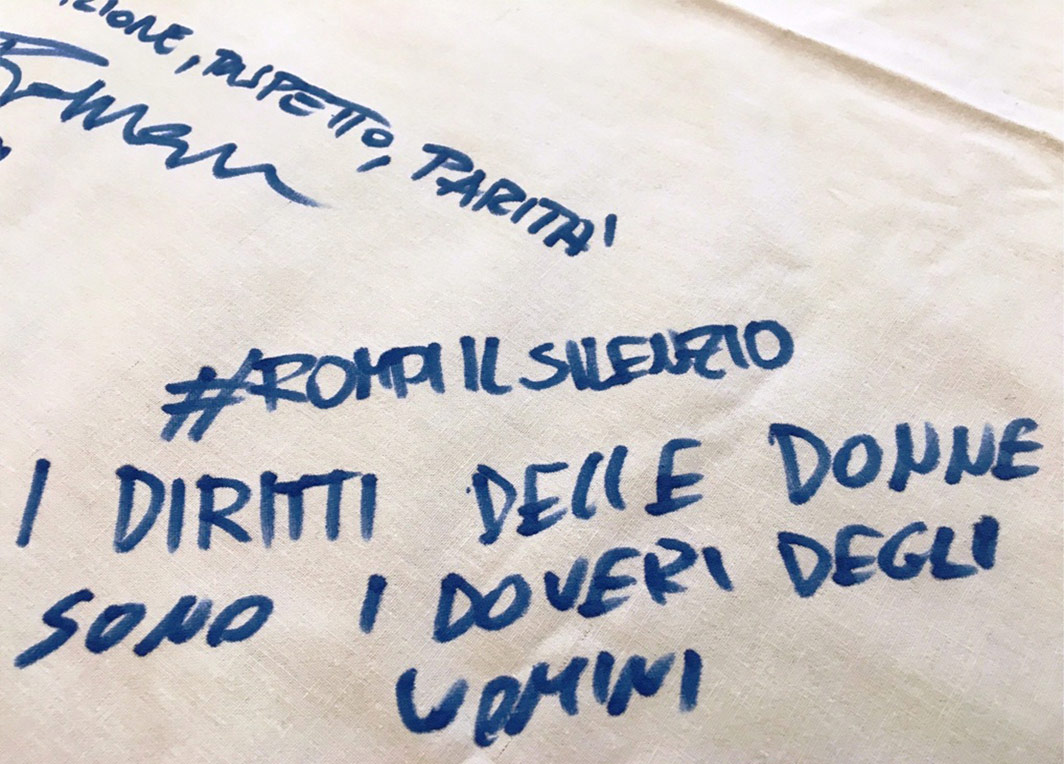 RISPETTO, PARITA'
#ROMPIILSILENZIO
I DIRITTI DELLE DONNE
SONO I DOVERI DEGLI
UOMINI